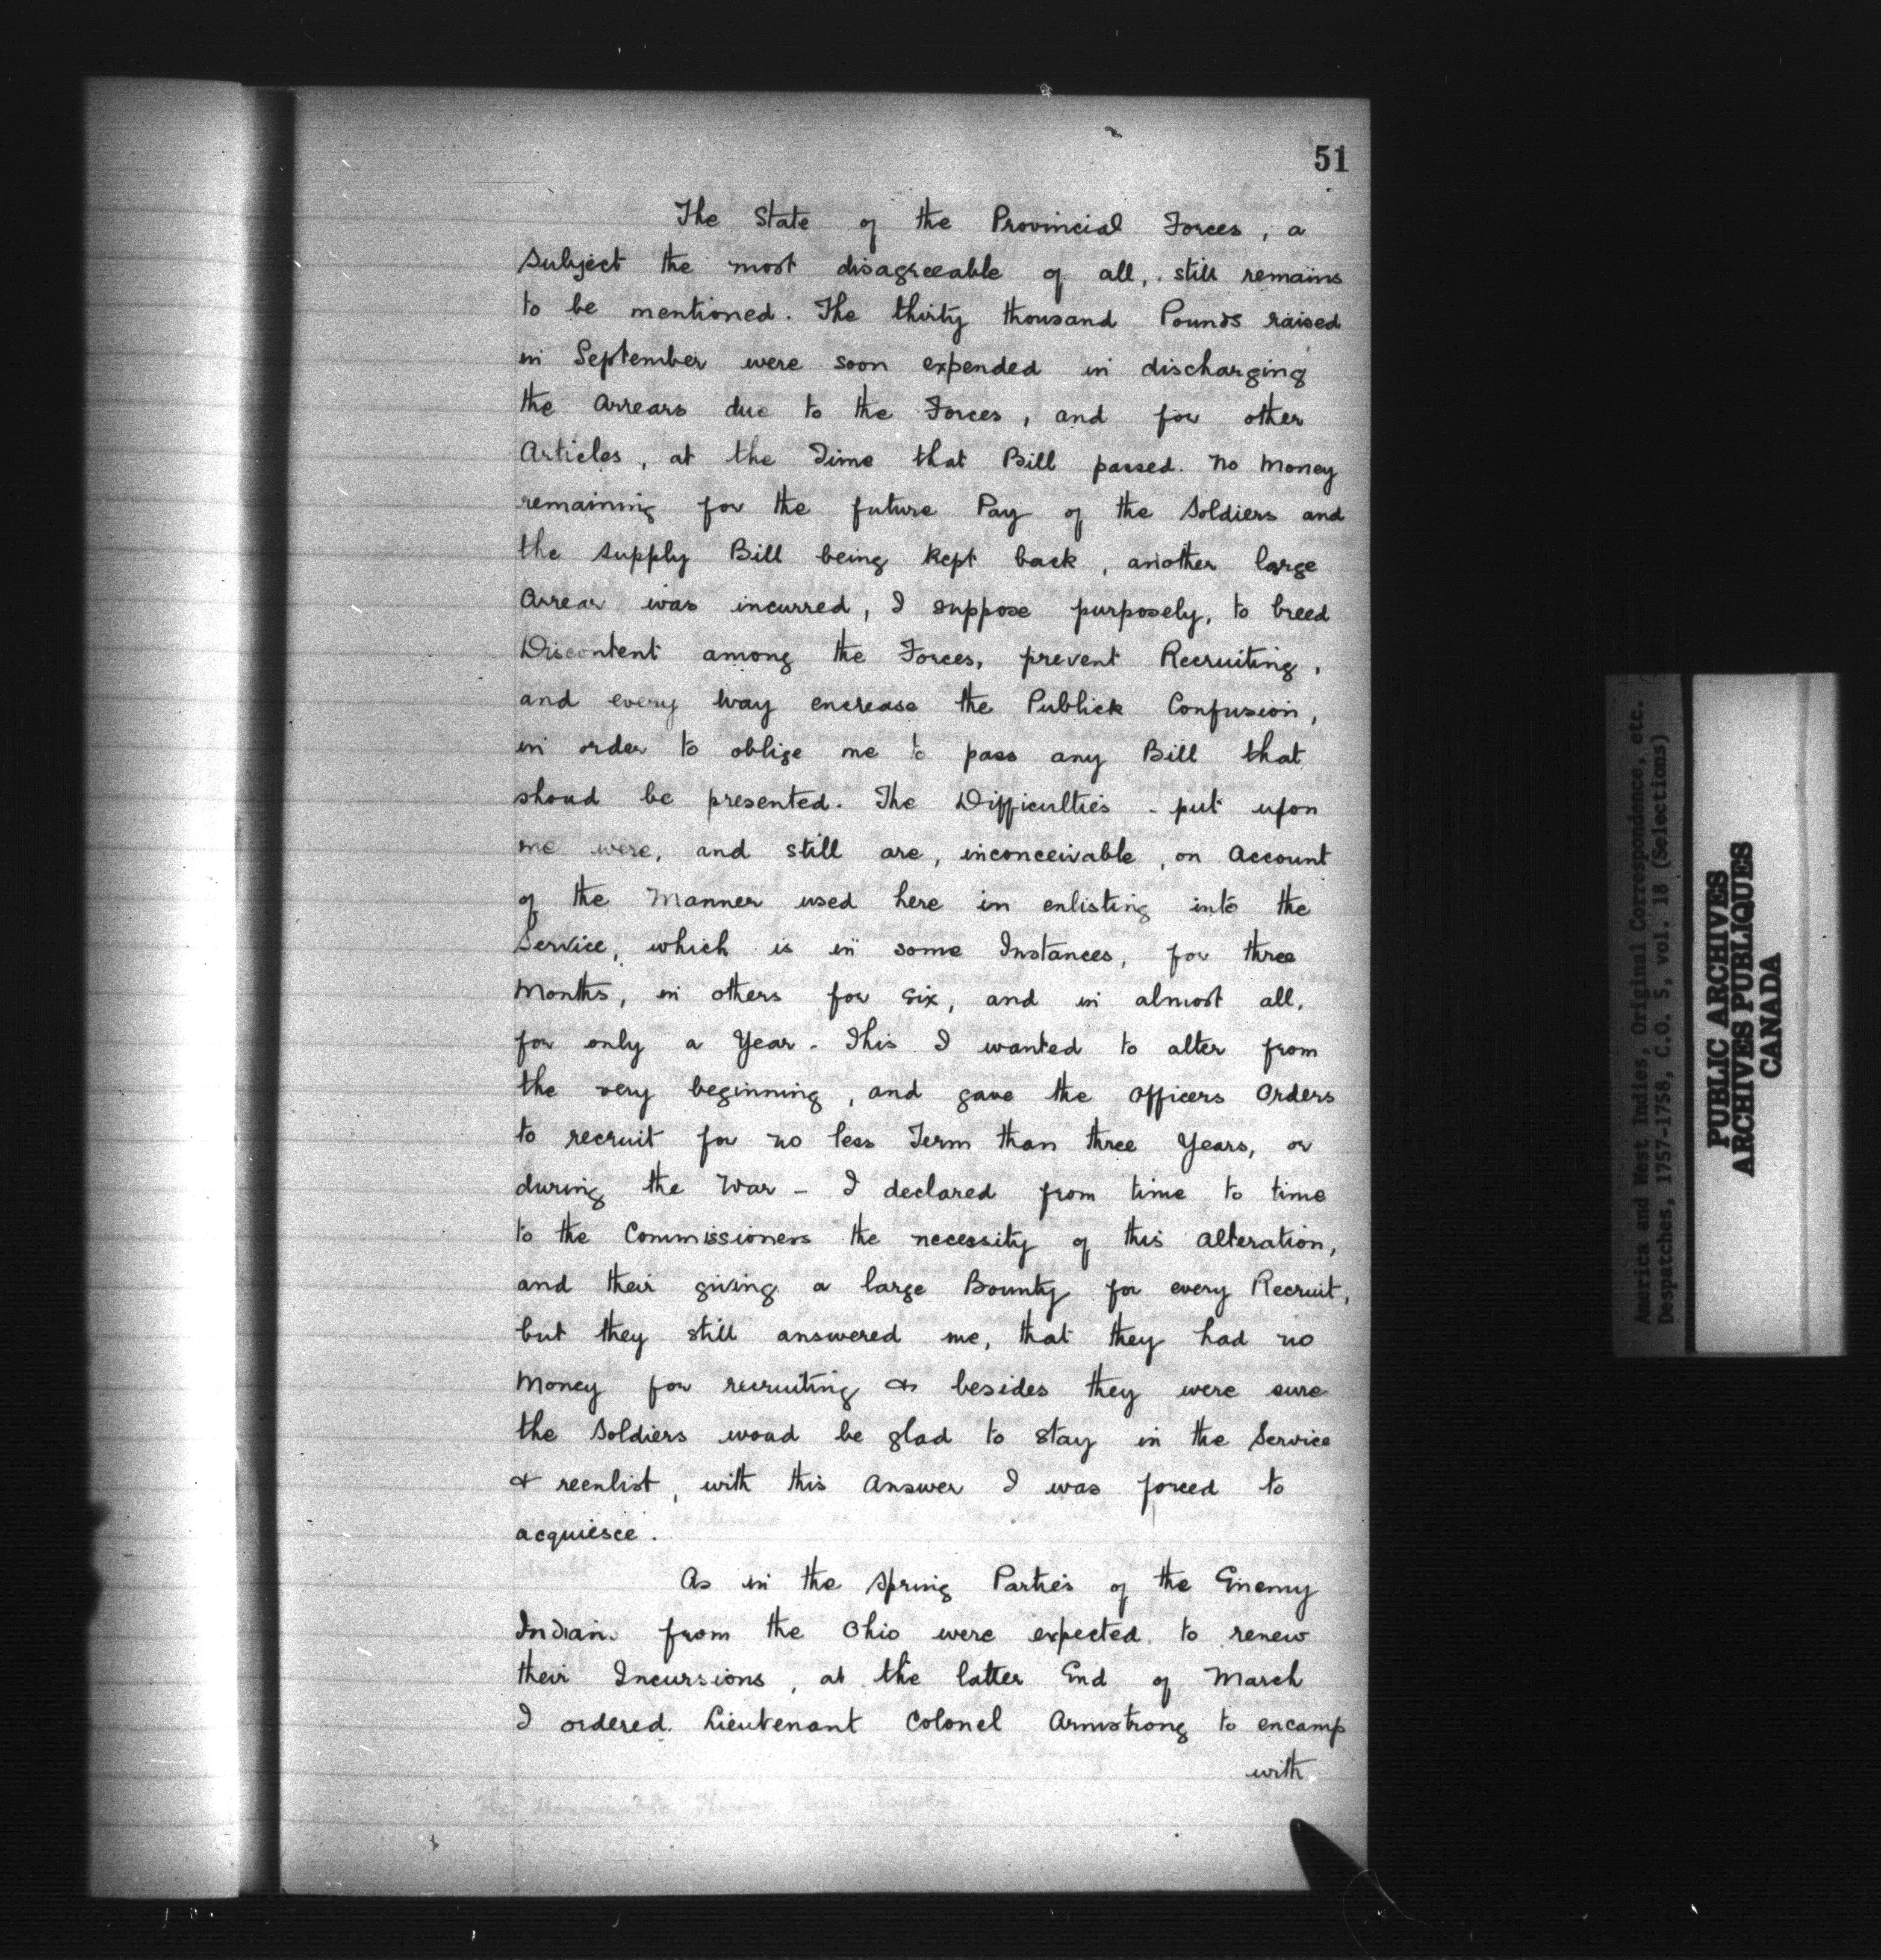 51
The State of the Provincial Forces, a
subject the most disagreeable of all, still remains
to be mentioned. The thirty thousand Pounds raised
in September were soon expended in discharging
the Arrears due to the Forces, and for other
Articles, at the Time that Bill passed. No Money
remaining for the future Pay of the Soldiers and
the supply Bill being kept back, another large
Arrear was incurred, I suppose purposely, to breed
Discontent among the Forces, prevent Recruiting,
and every way encrease the Publick Confusion,
in order to oblige me to pass any Bill that
shoud be presented. The Difficulties - put upon
me were, and still are, inconceivable, on Account
of the Manner used here in enlisting into the
Service, which is in some Instances, for three
Months, in others for six, and in almost all,
for only a Year - This I wanted to alter from
the very beginning, and gave the Officers Orders
to recruit for no less Term than three Years, or
during the War - I declared from time to time
to the Commissioners the necessity of this alteration,
and their giving a large Bounty for every Recruit,
but they still answered me, that they had no
Money for recruiting & besides they were sure
the Soldiers woud be glad to stay in the Service
& reenlist, with this Answer I was forced to
acquiesce.
As in the Spring Parties of the Enemy
Indians from the Ohio were expected to renew
their Incursions, at the latter End of March
I ordered Lieutenant Colonel Armstrong to encamp
with
America and West Indies, Original Correspondence, etc.
Despatches, 1757-1758, C.O. 5, vol. 18 (Selections)
PUBLIC ARCHIVES
ARCHIVES PUBLIQUES
CANADA